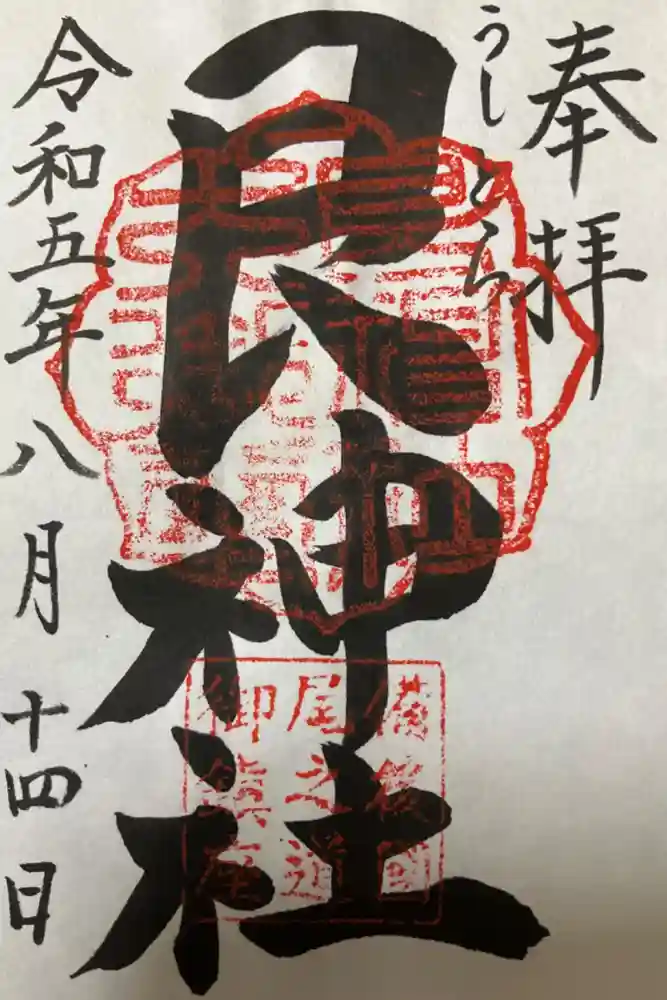 奉拝
うしとら
艮神社
備後國
尾之道
御鎮座
令和五年八月十四日